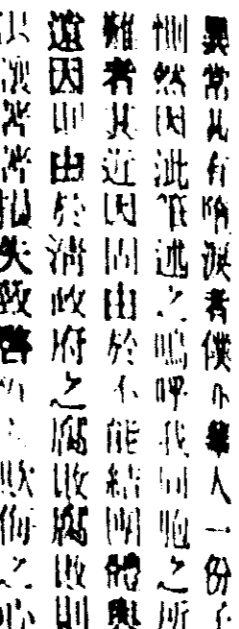 異常有隕淚者僕亦華人一份子
惻然因泚筆述之嗚呼我同胞之所
難者其近因固由於不能結團體與
遠因則由於清政府之腐敗腐敗則
失致啓欺侮之心